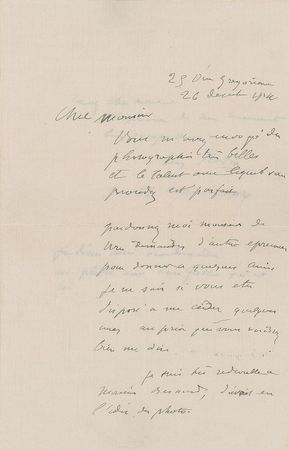 25 Via Gregoriana
26 Decemb
Cher monsieur
Vous m'avez envoyé des
photographies très belles
et le talent avec lequel vous
procédez est parfait
pardonnez moi monsieur de
vous demander d'autres épreuves
pour donner a quelques amis
je ne sais si vous êtes
disposé a me céder quelques
unes au prix que vous voudrez
bien me dire
je suis très
Monsieur
l'idée des photos